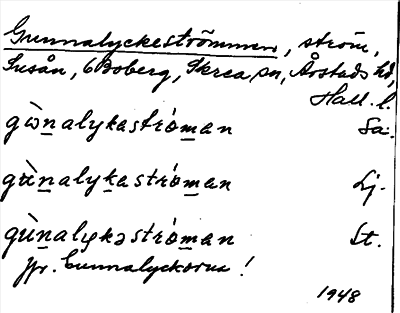 Gunnalyckeströmmen, ström,
Susån, 6 Boberg, Skrea sn, Årstads hd,
Hall. l.
gὼn̲alyk̲astróm̲an Sa:.
gὺn̲alyk̲astróm̲an Lj.
gùn̲alyk̲əstróm̲an St.
jfr. Gunnalyckorna!
1948